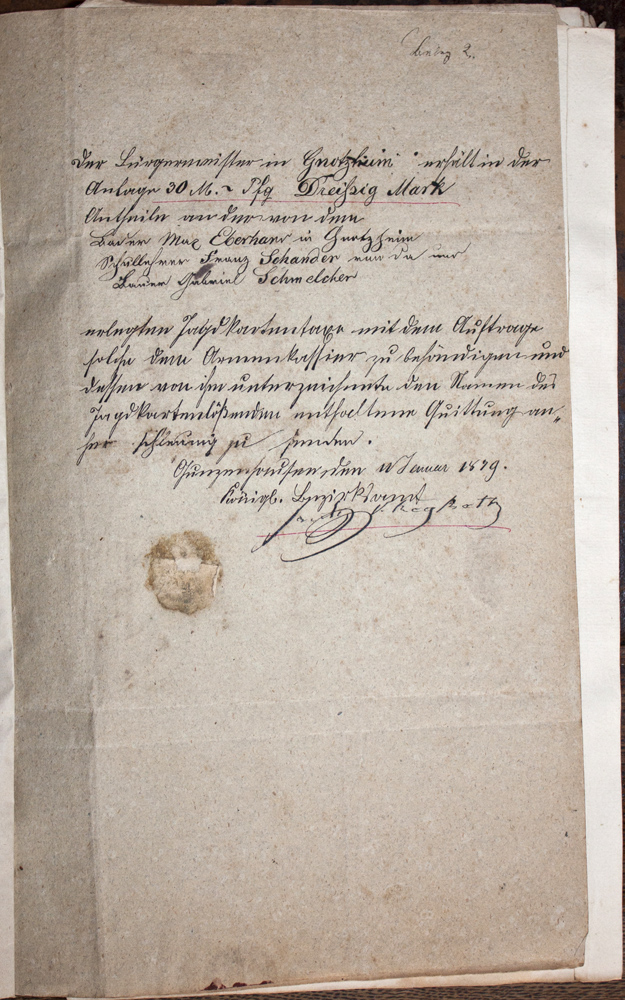 Beleg 2.
Der Bürgermeister in Gnotzheim erhält in der
Anlage 30 M. ~ Pfg Dreißig Mark
Antheile an der von dem
Bauer Max Eberhard in Gnotzheim
Schullehrer Franz Schander von da und
Bauer Gabriel Schmelcher
erlegten Jagdkartentaxe mit dem Auftrage
solche dem Armenkassier zu behändigen und
dessen von ihm unterzeichnete den Namen des
Jagdkartenlösenden enthaltene Quittung an„
her schleunig zu senden.
Gunzenhausen, den Januar 1879.
Königl. Bezirksamt